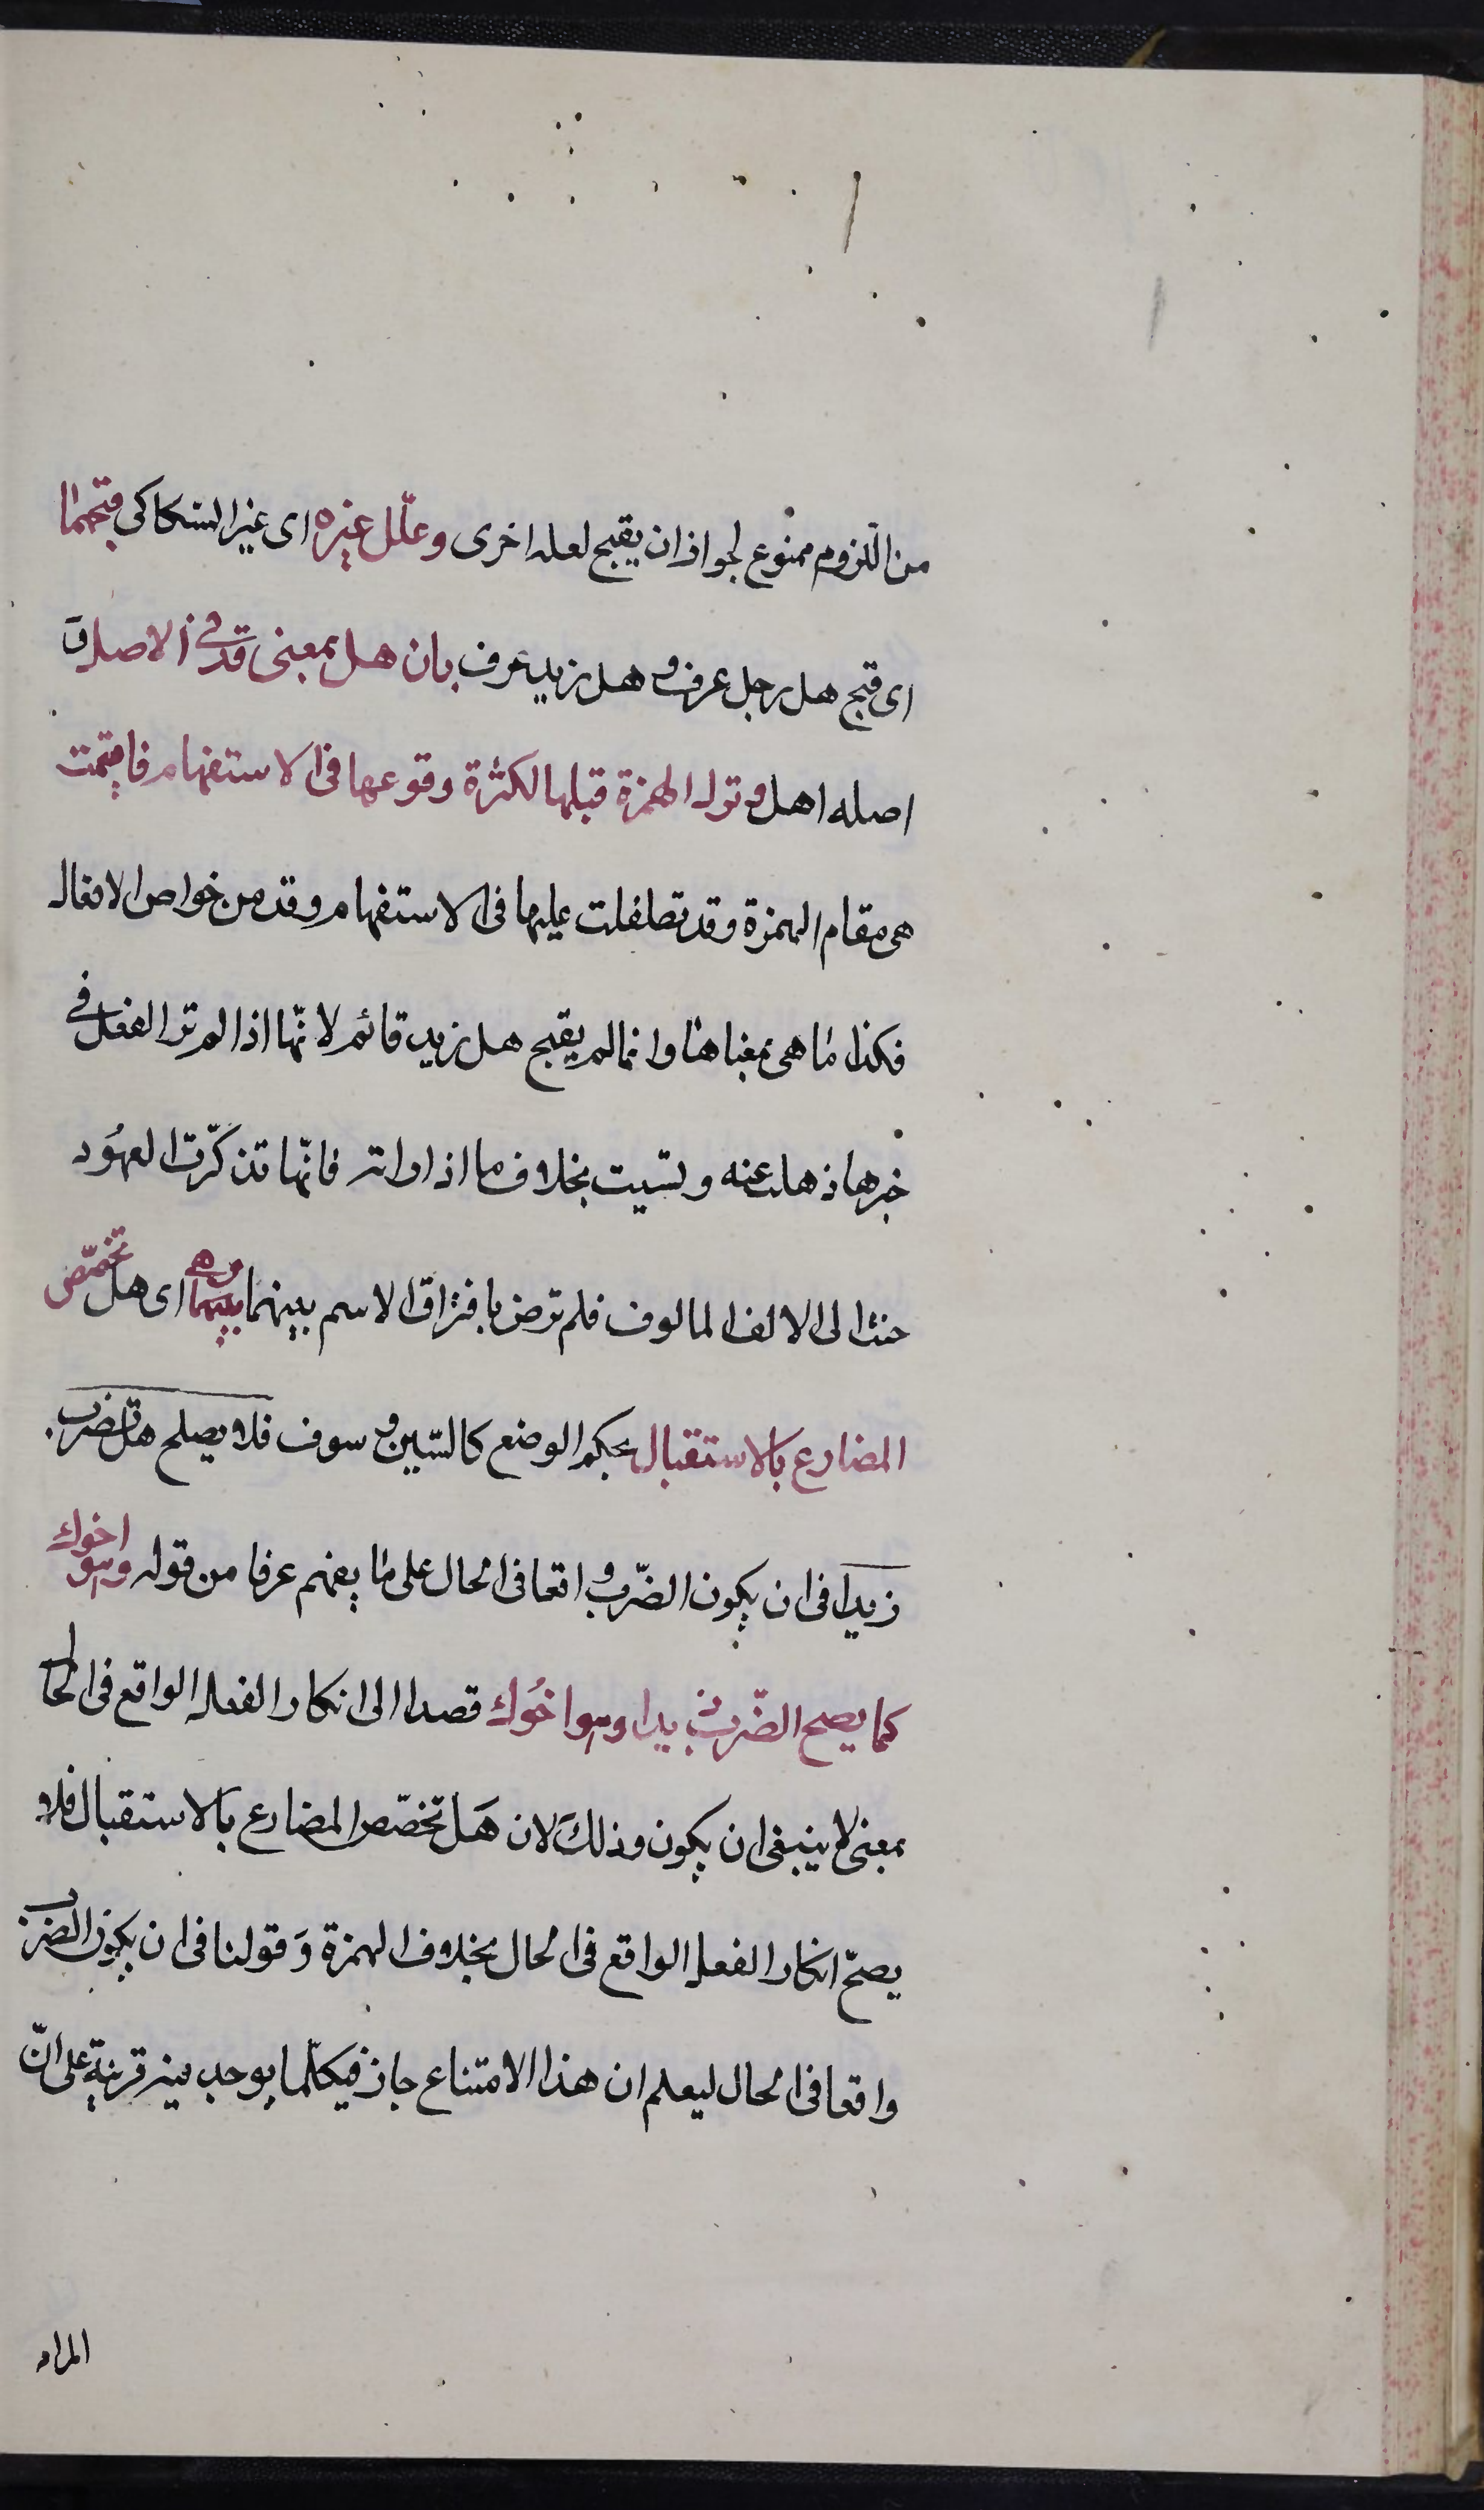 من اللزوم ممنوع لجواز ان يقبح لعله اخرى وعلّل غيره اى غير السكاكى قبحهما
اى قبح هل رجل عرف و هل زيد عرف بان هل بمعنى قد فى الاصل و
اصله اهل و ترك الهمزة قبلها لكثرة وقوعها فى الاستفهام فاقيمت
هى مقام الهمزة وقد تطفلت عليها فى الاستفهام وقد من خواص الافعال
فكذا ما هى بمعناها وانما لم يقبح هل زيد قائم لانّها اذا لم تر الفعل فى
خبرها ذهلت عنه و نسيت بخلاف ما اذا راته فانّها تذكّرت العهُود
حنت الى الالف المالوف فلم ترض بافتراق الاسم بينهما وهى اى هل تخصّص
المضارع بالاستقبال بحكم الوضع كالسّين و سوف فلا يصلح هل تضرب
زيدا فى ان يكون الضّرب واقعا فى الحال على ما يفهم عرفا من قوله وهو اخوك
كما يصح الضّرب زيدا وهو اخُوك قصدا الى انكار الفعل الواقع فى الحال
بمعنى لا ينبغى ان يكون وذلك لان هَل تخصّص المضارع بالاستقبال فلا
يصحّ انكار الفعل الواقع فى الحال بخلاف الهمزة وَ قولنا فى ان يكون الضرب
واقعا فى الحال ليعلم ان هذا الامتناع جاز فيكلّما يوجد فيه قرينة على انّ
المراد